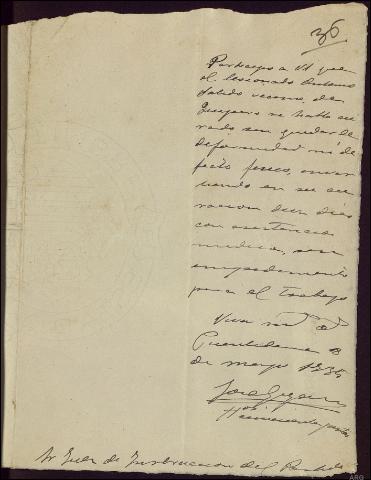 36
Participo a Vd que
el lesionado Antonio
Salido vecino de
se halla cu
rado sin quedar de
deformidad ni de
fecto fisico, inver
tiendo en su cu
racion diez dias
con asistencia
medica, con
impedimento
para el trabajo
Viva m. a.
Fuentidueña 3
de mayo 1935
José
Sr Juez de Instruccion del Partido
ARG